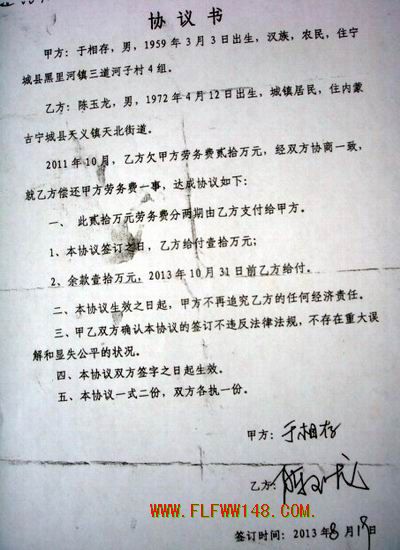 协 议 书
甲方：于相存，男，1959年3月3日出生，汉族，农民，住宁
城县黑里河镇三道河子村4组。
乙方：陈玉龙，男，1972年4月12日出生，城镇居民，住内蒙
古宁城县天义镇天北街道。
2011年10月，乙方欠甲方劳务费贰拾万元，经双方协商一致，
就乙方偿还甲方劳务费一事，达成协议如下：
一、 此贰拾万元劳务费分两期由乙方支付给甲方。
1、本协议签订之日，乙方给付壹拾万元；
2、余款壹拾万元，2013年10月31日前乙方给付。
二、本协议生效之日起，甲方不再追究乙方的任何经济责任。
三、甲乙双方确认本协议的签订不违反法律法规，不存在重大误
解和显失公平的状况。
四、本协议双方签字之日起生效。
五、本协议一式二份，双方各执一份。
甲方：于相存
乙方：
WWW.FLFWW148.COM
签订时间：2013年8月19日